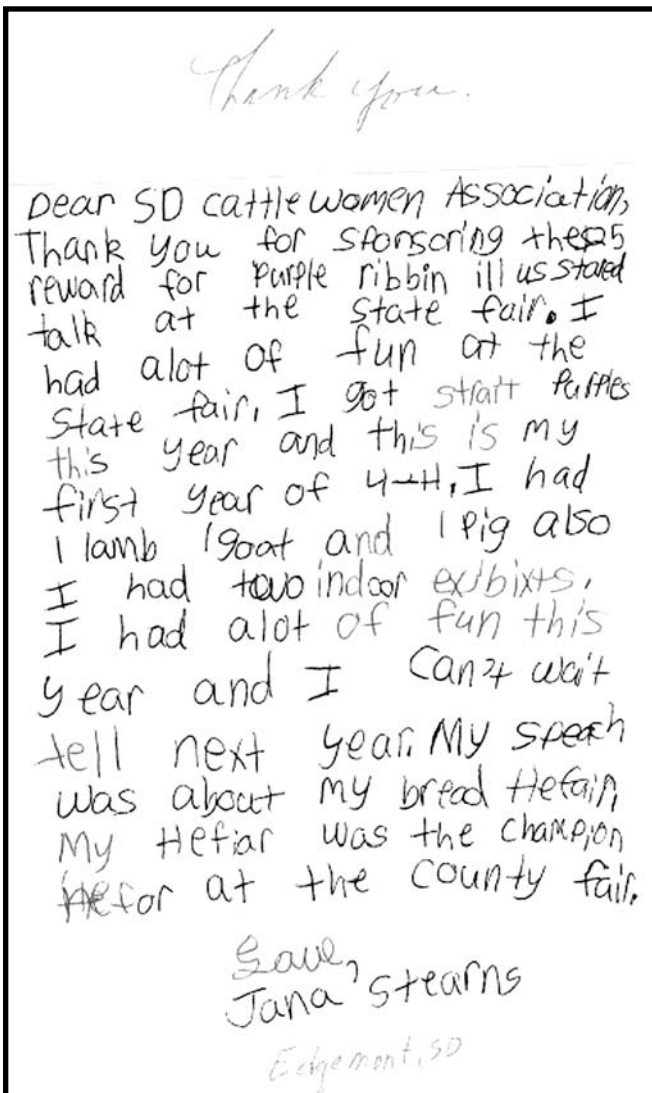 Thank you.
Dear SD cattlewomen Association,
Thank you for sponsoring the
reward for purple ribbin illusstared
talk at the state fair. I
had alot of fun at the
State fair, I got strait Purples
this year and this is my
first year of 4-H, I had
1 lamb 1 goat and 1 pig also
I had two indoor exibixts.
I had alot of fun this
year and I can't wait
tell next year. My speach
was about my bread Hefair,
My Hefiar was the champion
Hefor at the county fair.
Jana Stearns
Edgemont, SD